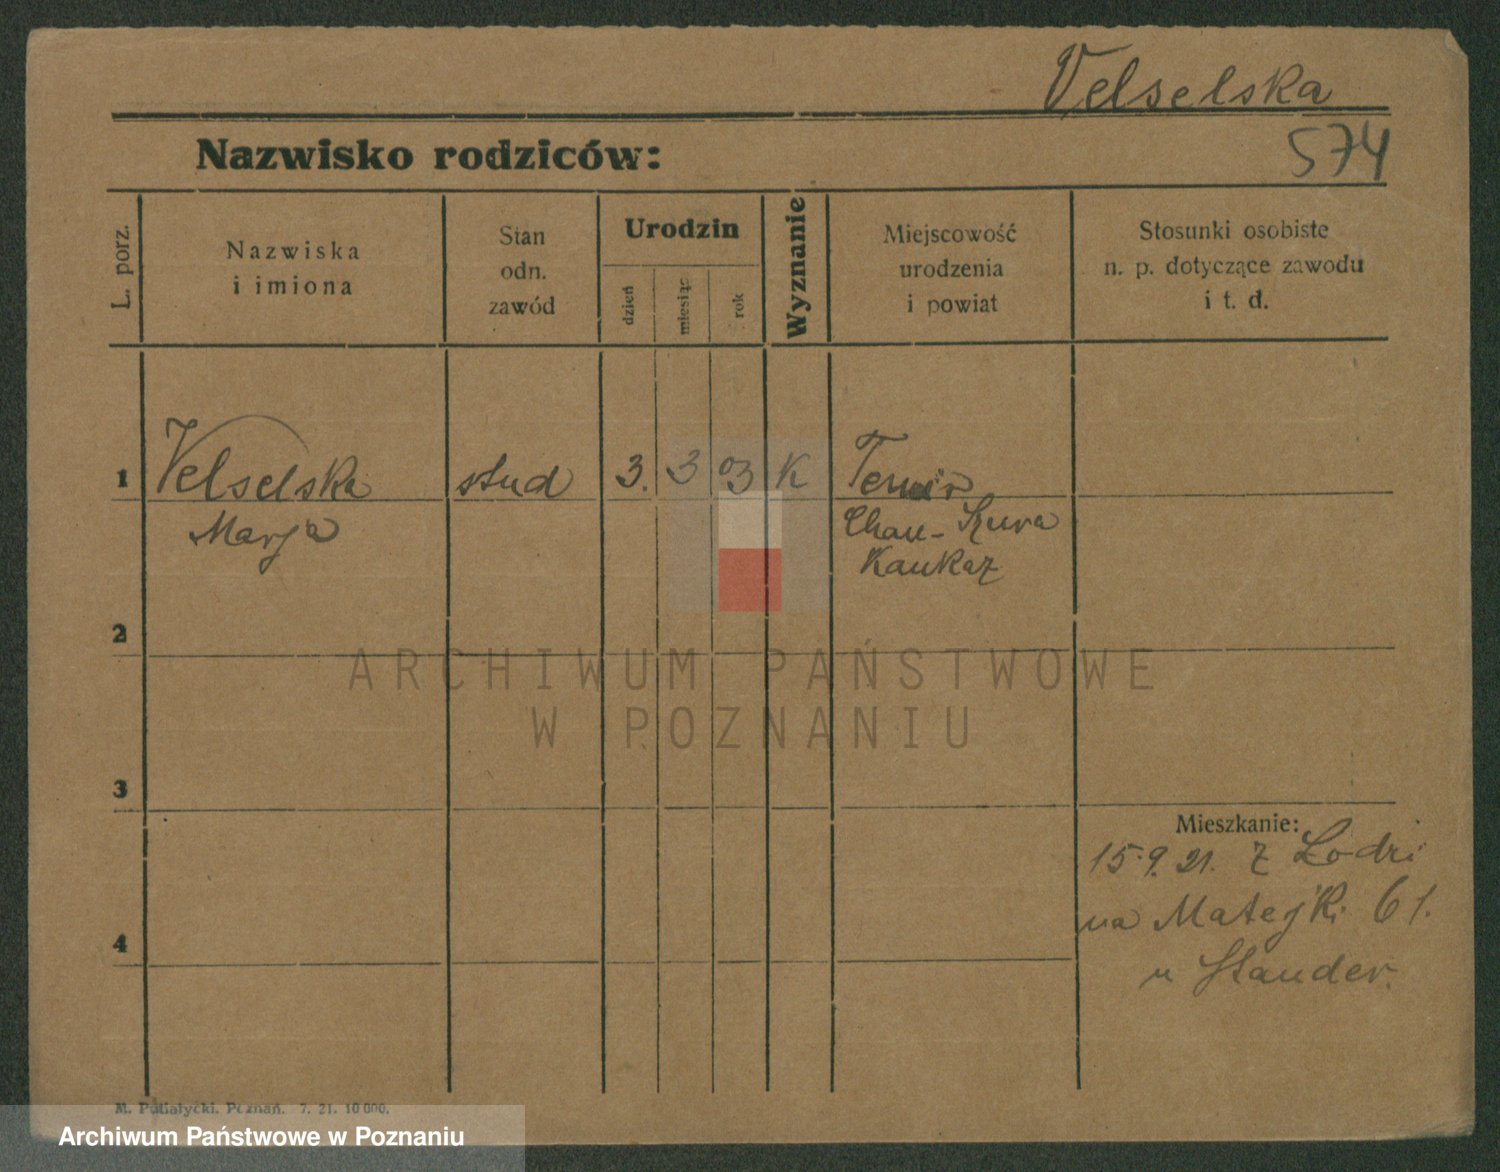 Velselska
Nazwisko rodziców:
574
L. porz.
Nazwiska
i imiona
Stan
odn.
zawód
Urodzin
dzień
miesiąc
rok
Wyznanie
Miejscowość
urodzenia
i powiat
Stosunki osobiste
n. p. dotyczące zawodu
i t. d.
1
Velselska
stud
3.
3
03
K
Temir
Marja
Chan-Szura
Kaukaz
2
ARCHIWUM PAŃSTWOWE
W POZNANIU
3
Mieszkanie:
15.9.21. z Łodzi
na Matejki 61.
4
u Stander.
M. Putiatycki, Poznań. 7. 21. 10 000.
Archiwum Państwowe w Poznaniu